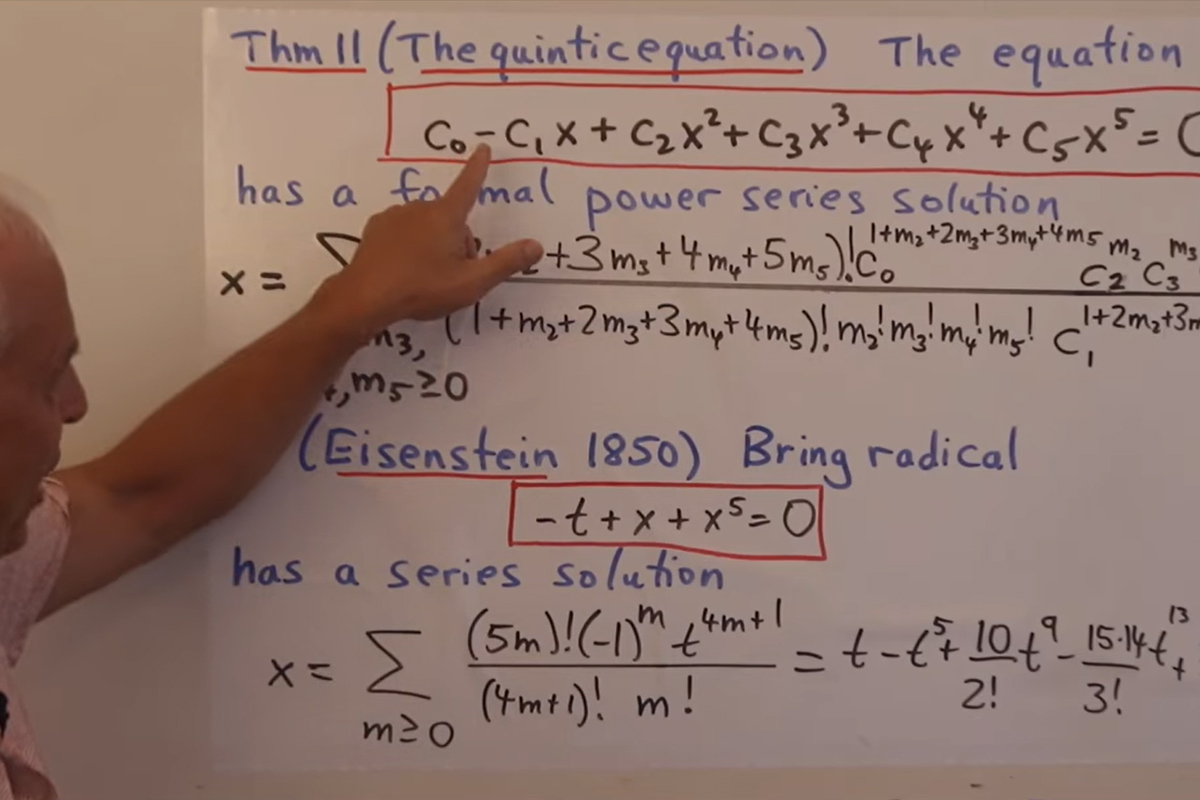 Thm 11 (The quintic equation) The equation
C₀ - C₁x + C₂x² + C₃x³ + C₄x⁴ + C₅x⁵ =
has a formal power series solution
x = Σ +3m₃+4m₄+5m₅)! C₀^(1+m₂+2m₃+3m₄+4m₅) C₂^(m₂) C₃^(m₃)
(1+m₂+2m₃+3m₄+4m₅)! m₂! m₃! m₄! m₅! C₁^(1+2m₂+3m
m₃,
,m₅≥0
(Eisenstein 1850) Bring radical
-t + x + x⁵ = 0
has a series solution
x = Σ_(m≥0) (5m)!(-1)^m t^(4m+1) / (4m+1)! m! = t - t⁵ + 10/2! t⁹ - 15·14/3! t¹³ +